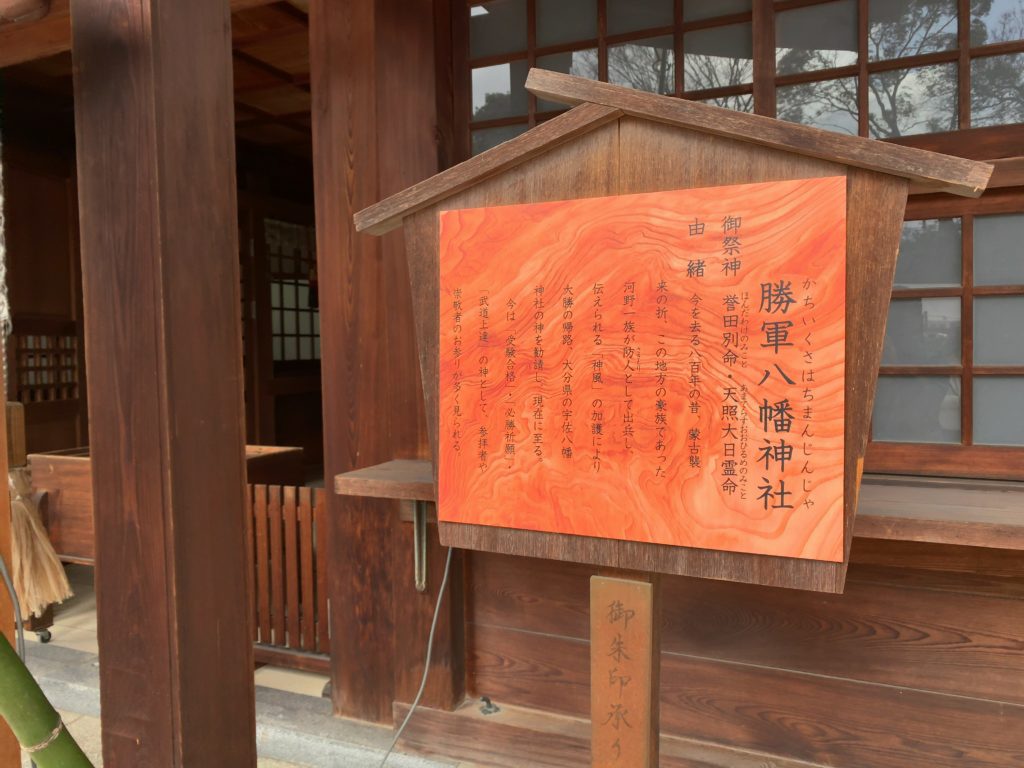 かちいくさはちまんじんじゃ
勝軍八幡神社
御祭神
ほんだわけのみこと あまてらすおおひるめのみこと
誉田別命・天照大日霊命
由緒
今を去る八百年の昔、蒙古襲
来の折、この地方の豪族であった
さきもり
河野一族が防人として出兵し、
伝えられる「神風」の加護により
大勝の帰路、大分県の宇佐八幡
神社の神を勧請し、現在に至る。
今は「受験合格」・「必勝祈願」・
「武道上達」の神として、参拝者や
崇敬者のお参りが多く見られる。
御朱印承り